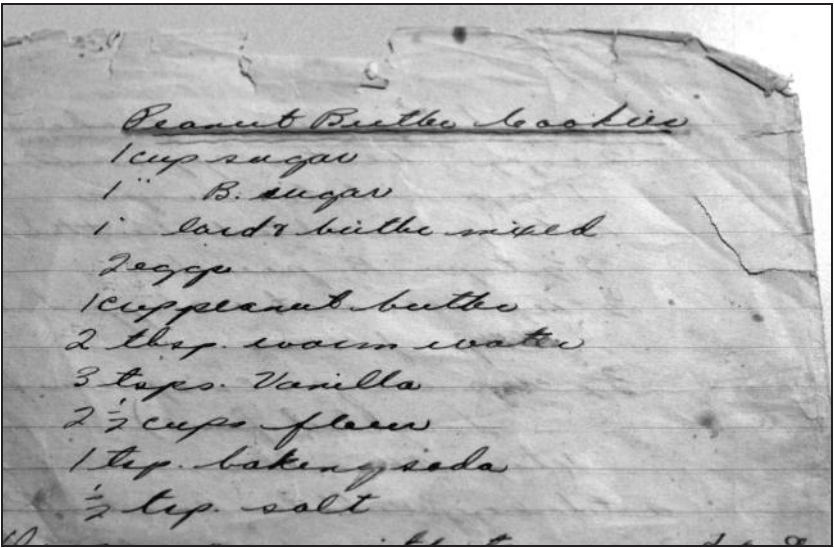 Peanut Butter Cookies
1 cup sugar
1 " B. sugar
1 " lard & butter mixed
2 eggs
1 cup peanut butter
2 tbsp. warm water
3 tsps. Vanilla
2 1/2 cups flour
1 tsp. baking soda
1/2 tsp. salt